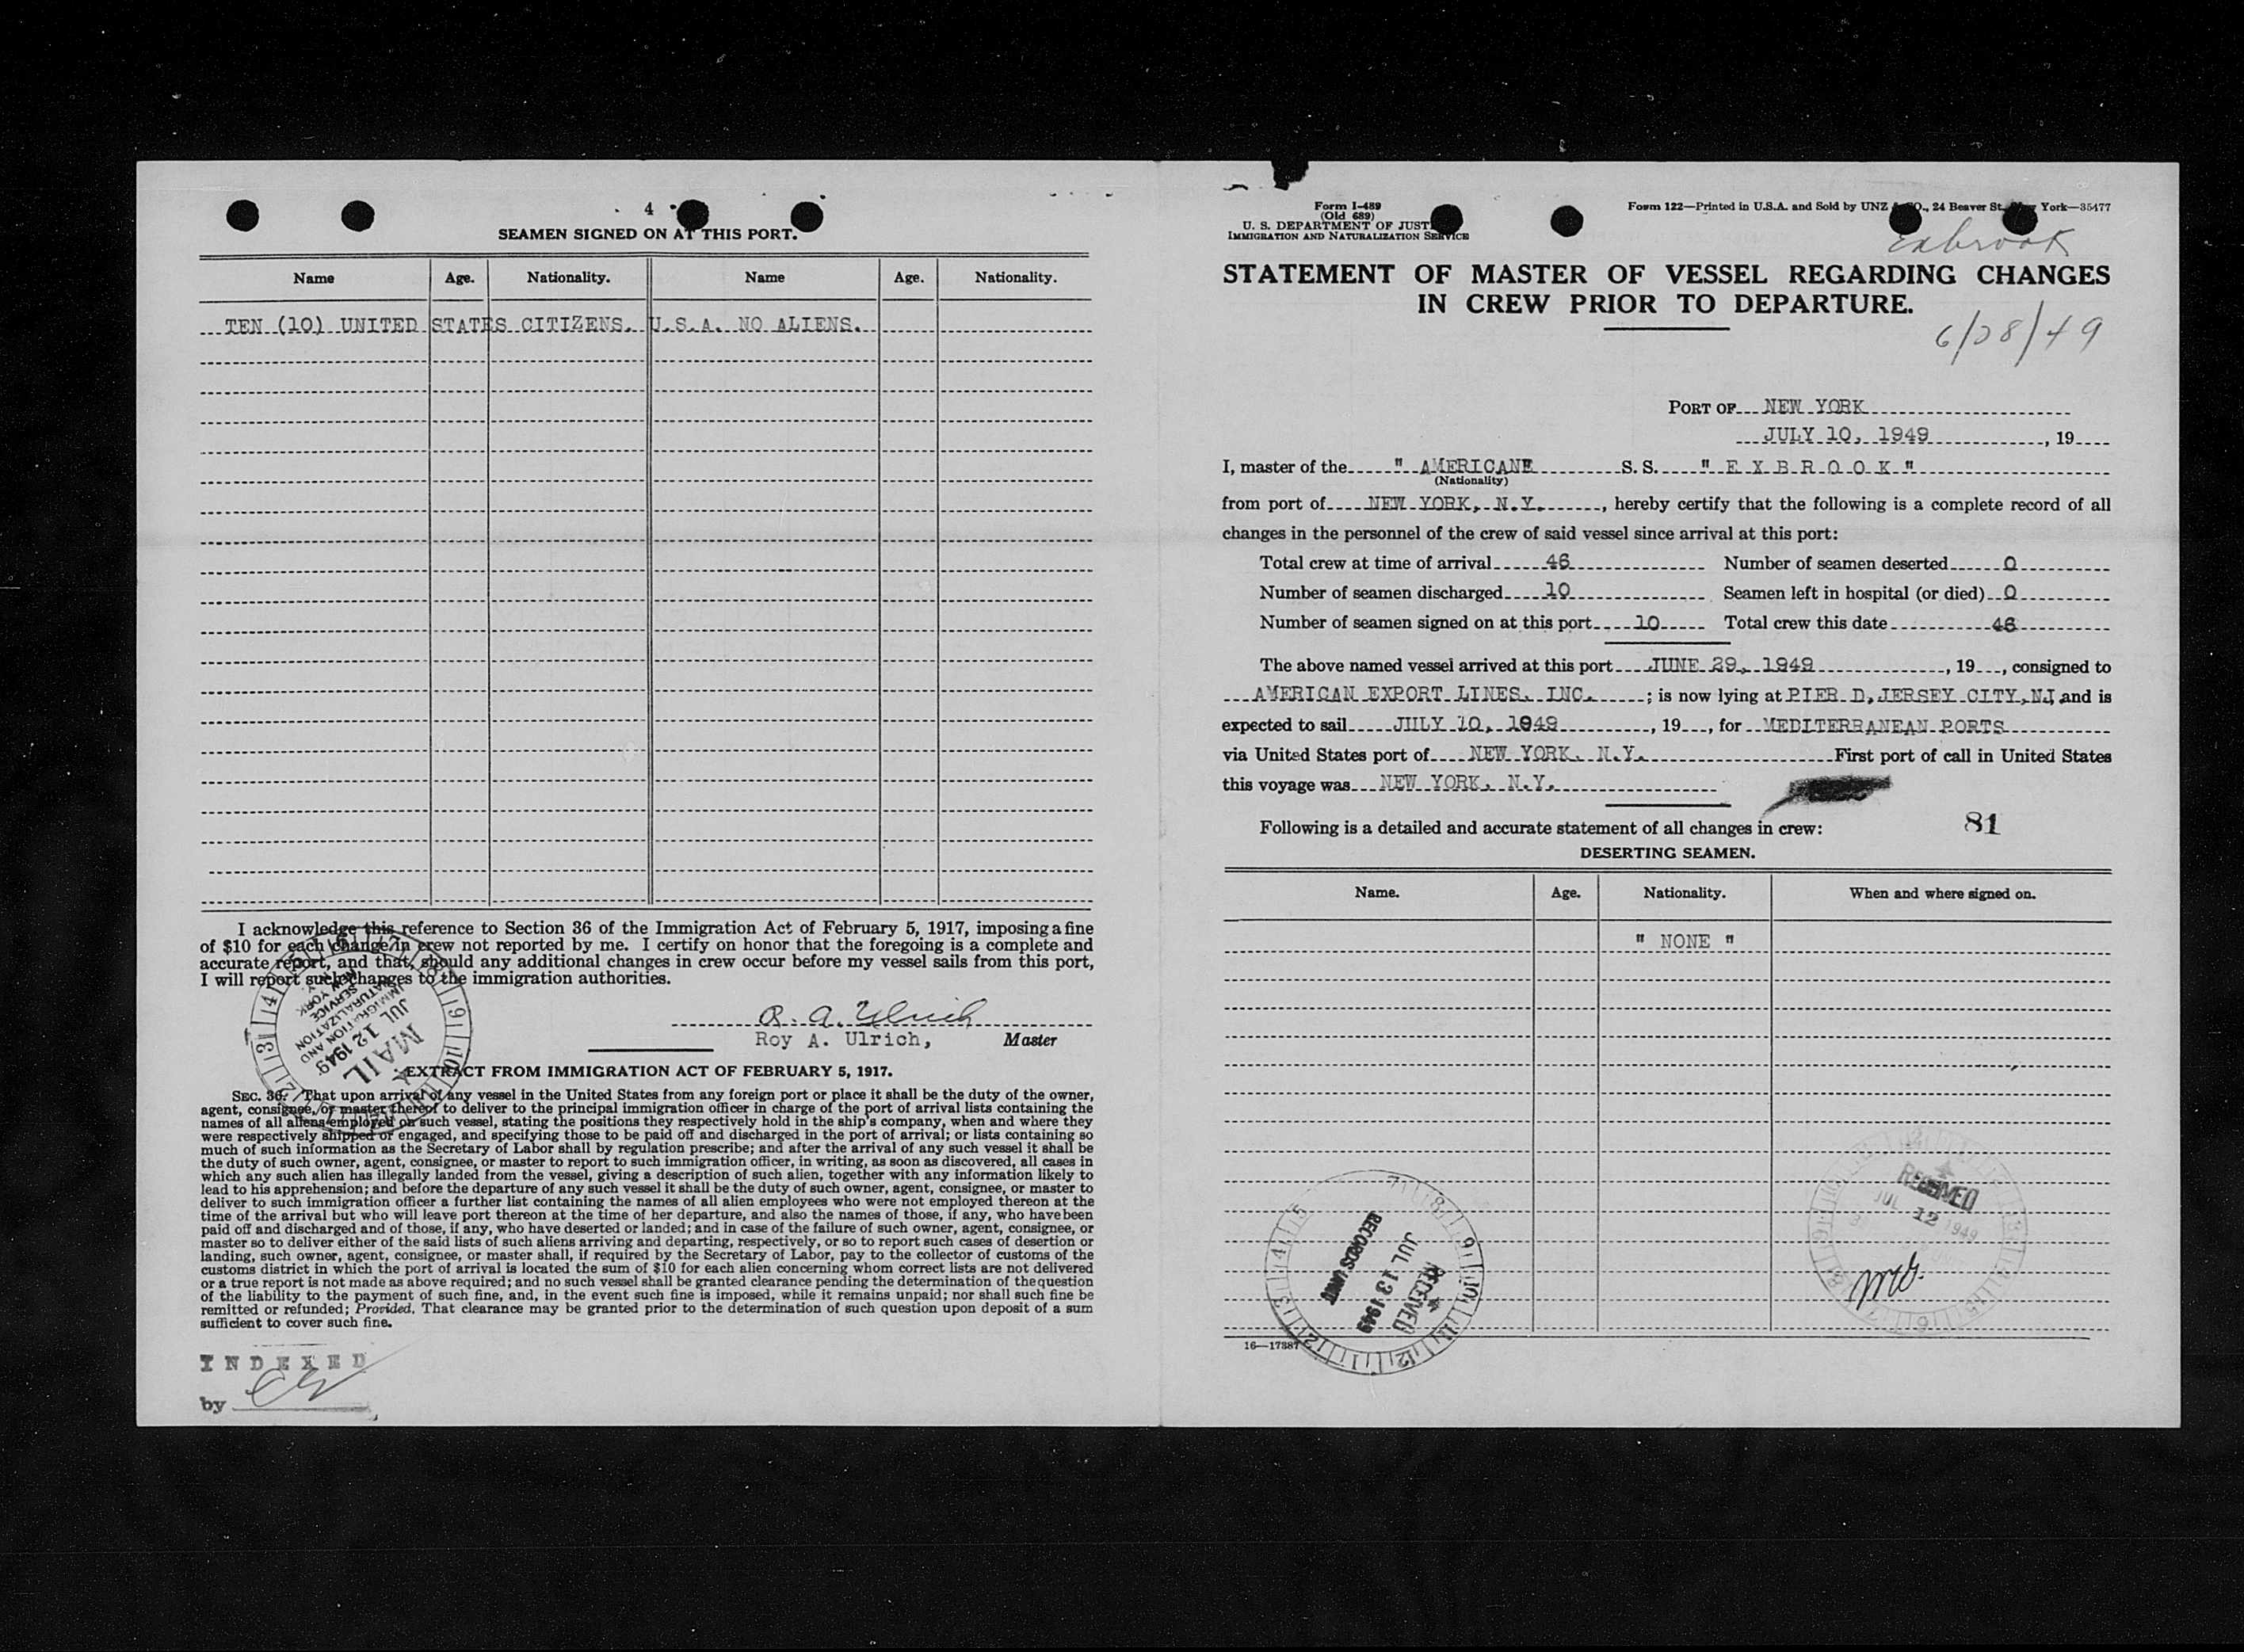 4
SEAMEN SIGNED ON AT THIS PORT.
Name Age. Nationality. Name Age. Nationality.
TEN (10) UNITED STATES CITIZENS. U.S.A. NO ALIENS.
I acknowledge this reference to Section 36 of the Immigration Act of February 5, 1917, imposing a fine
of $10 for each change in crew not reported by me. I certify on honor that the foregoing is a complete and
accurate report, and that, should any additional changes in crew occur before my vessel sails from this port,
I will report such changes to the immigration authorities.
R. A. Ulrich
Roy A. Ulrich, Master
MAIL
JUL 12 1949
IMMIGRATION AND
NATURALIZATION
SERVICE
NEW YORK
EXTRACT FROM IMMIGRATION ACT OF FEBRUARY 5, 1917.
SEC. 36. That upon arrival of any vessel in the United States from any foreign port or place it shall be the duty of the owner,
agent, consignee, or master thereof to deliver to the principal immigration officer in charge of the port of arrival lists containing the
names of all aliens employed on such vessel, stating the positions they respectively hold in the ship's company, when and where they
were respectively shipped or engaged, and specifying those to be paid off and discharged in the port of arrival; or lists containing so
much of such information as the Secretary of Labor shall by regulation prescribe; and after the arrival of any such vessel it shall be
the duty of such owner, agent, consignee, or master to report to such immigration officer, in writing, as soon as discovered, all cases in
which any such alien has illegally landed from the vessel, giving a description of such alien, together with any information likely to
lead to his apprehension; and before the departure of any such vessel it shall be the duty of such owner, agent, consignee, or master to
deliver to such immigration officer a further list containing the names of all alien employees who were not employed thereon at the
time of the arrival but who will leave port thereon at the time of her departure, and also the names of those, if any, who have been
paid off and discharged and of those, if any, who have deserted or landed; and in case of the failure of such owner, agent, consignee, or
master so to deliver either of the said lists of such aliens arriving and departing, respectively, or so to report such cases of desertion or
landing, such owner, agent, consignee, or master shall, if required by the Secretary of Labor, pay to the collector of customs of the
customs district in which the port of arrival is located the sum of $10 for each alien concerning whom correct lists are not delivered
or a true report is not made as above required; and no such vessel shall be granted clearance pending the determination of the question
of the liability to the payment of such fine, and, in the event such fine is imposed, while it remains unpaid; nor shall such fine be
remitted or refunded; Provided, That clearance may be granted prior to the determination of such question upon deposit of a sum
sufficient to cover such fine.
INDEXED
by
Form I-489
(Old 689)
U. S. DEPARTMENT OF JUSTICE
IMMIGRATION AND NATURALIZATION SERVICE
Form 122—Printed in U.S.A. and Sold by UNZ & CO., 24 Beaver St., New York—35477
Exbrook
STATEMENT OF MASTER OF VESSEL REGARDING CHANGES
IN CREW PRIOR TO DEPARTURE.
6/28/49
PORT OF NEW YORK
JULY 10, 1949, 19
I, master of the " AMERICAN" S. S. " E X B R O O K "
(Nationality)
from port of NEW YORK, N.Y., hereby certify that the following is a complete record of all
changes in the personnel of the crew of said vessel since arrival at this port:
Total crew at time of arrival 46 Number of seamen deserted 0
Number of seamen discharged 10 Seamen left in hospital (or died) 0
Number of seamen signed on at this port 10 Total crew this date 46
The above named vessel arrived at this port JUNE 29, 1949, 19, consigned to
AMERICAN EXPORT LINES, INC.; is now lying at PIER D, JERSEY CITY, NJ, and is
expected to sail JULY 10, 1949, 19, for MEDITERRANEAN PORTS
via United States port of NEW YORK, N.Y. First port of call in United States
this voyage was NEW YORK, N.Y.
Following is a detailed and accurate statement of all changes in crew: 81
DESERTING SEAMEN.
Name. Age. Nationality. When and where signed on.
" NONE "
RECEIVED
JUL 12 1949
RECEIVED
JUL 13 1949
RECORDS UNIT
16—17387